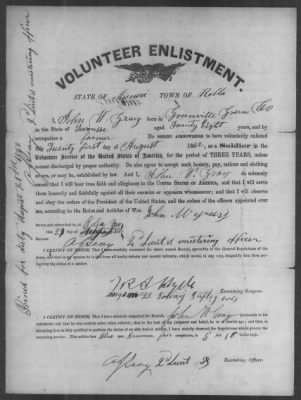 VOLUNTEER ENLISTMENT.
STATE OF Missouri TOWN OF Rolla
I, John W. Gray born in
in the State of Tennessee aged Twenty Eight years, and by
occupation a Farmer Do HEREBY ACKNOWLEDGE to have voluntarily enlisted
this Twenty first day of August 1862, as a Soldier in the
Volunteer Service of the United States of America, for the period of THREE YEARS, unless
sooner discharged by proper authority: Do also agree to accept such bounty, pay, rations and clothing
as are, or may be, established by law. And I, John W. Gray do solemnly
swear that I will bear true faith and allegiance to the United States of America, and that I will serve
them honestly and faithfully against all their enemies or opposers whomsoever; and that I will observe
and obey the orders of the President of the United States, and the orders of the officers appointed over
me, according to the Rules and Articles of War.
John W Gray
Sworn and subscribed to, at Rolla Mo
this 21 day of
BEFORE
2 Lieut & mustering officer
I CERTIFY ON HONOR, That I have carefully examined the above named Recruit, agreeably to the General Regulations of the
Army, and that in my opinion he is free from all bodily defects and mental infirmity, which would, in any way, disqualify him from per-
forming the duties of a soldier.
Examining Surgeon.
I CERTIFY ON HONOR, That I have minutely inspected the Recruit, John W Gray previously to his
enlistment, and that he was entirely sober when enlisted; that, to the best of my judgment and belief, he is of lawful age; and that, in
accepting him as duly qualified to perform the duties of an able-bodied soldier, I have strictly observed the Regulations which govern the
recruiting service. This soldier has Blue eyes, Brown hair, fair complexion, is 5 feet 10 inches high.
2 Lieut
Recruiting Officer.
Joined for duty August 21st 1862
2 Lieut & mustering officer